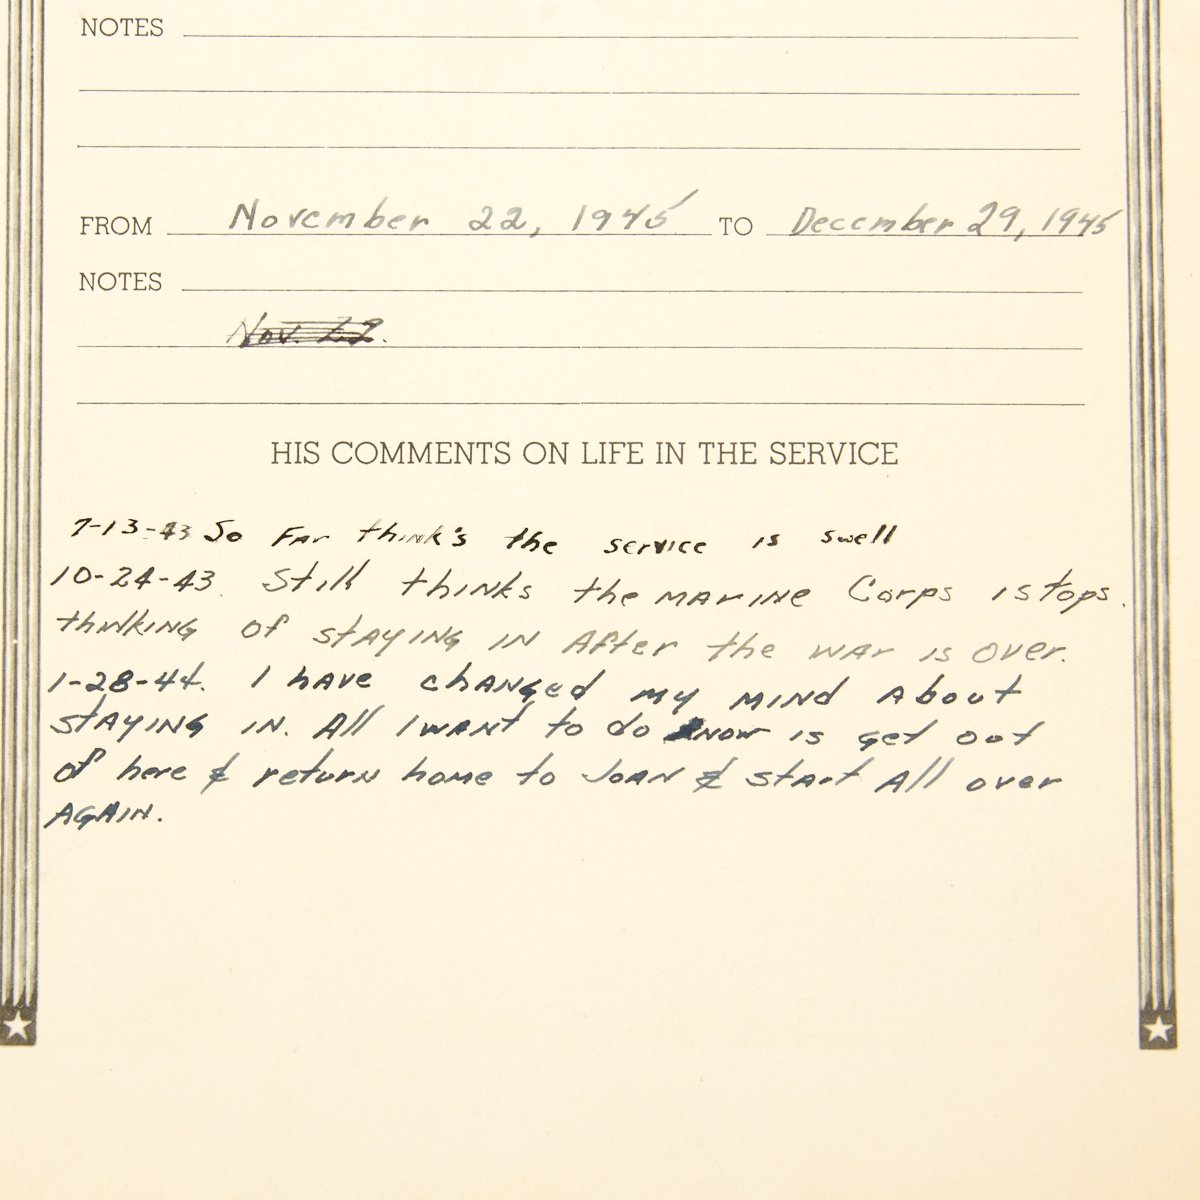 NOTES
FROM November 22, 1945 TO December 29, 1945
NOTES
Nov. 22.
HIS COMMENTS ON LIFE IN THE SERVICE
7-13-43 So Far think's the service is swell
10-24-43 Still thinks the MARINE Corps is tops.
thinking of STAYING IN After the WAR is over.
1-28-44. I HAVE CHANGED MY MIND About
STAYING IN. All I WANT to do NOW is get out
of here & return home to JOAN & start All over
AGAIN.